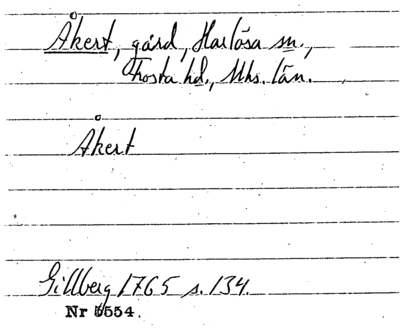 Åkert, gård, Harlösa sn.,
Frosta hd., Mhs. län.
Åkert
Gillberg 1765 s. 134.
Nr 5554.